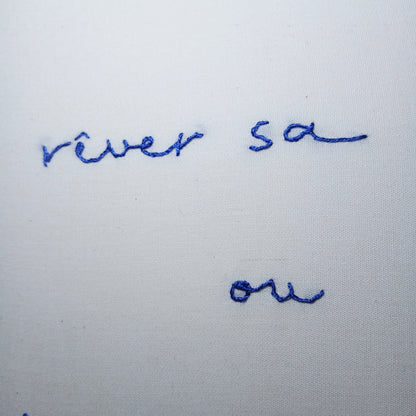 rêver sa
ou